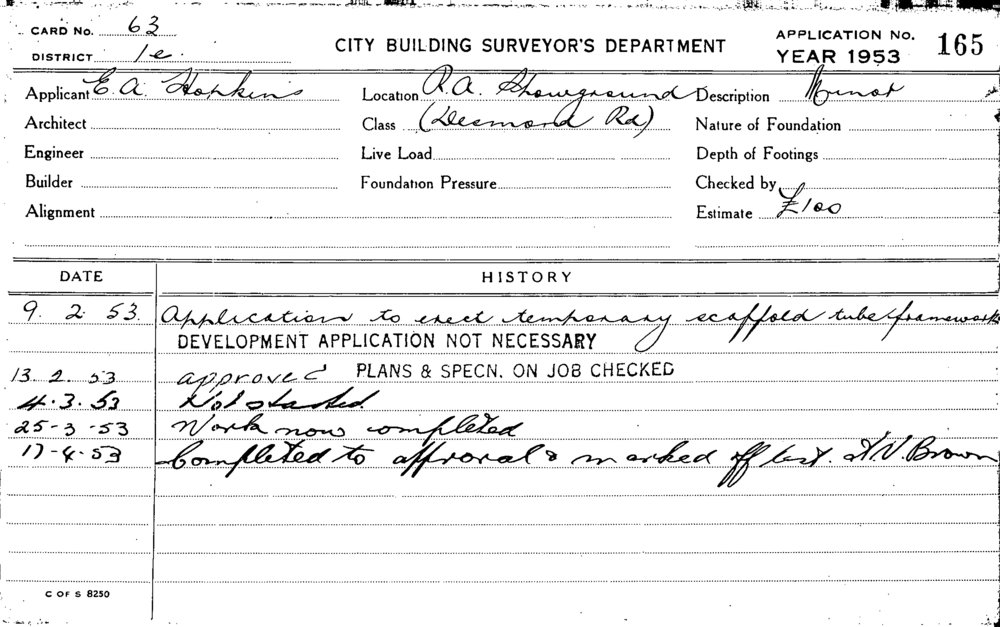 CARD No. 63
DISTRICT 1e
CITY BUILDING SURVEYOR'S DEPARTMENT
APPLICATION No. 165
YEAR 1953
Applicant E. A. Hopkins
Location R.A. Showground
Description Minor
Architect
Class (Desmond Rd)
Nature of Foundation
Engineer
Live Load
Depth of Footings
Builder
Foundation Pressure
Checked by
Alignment
Estimate £100
DATE HISTORY
9. 2. 53. Application to erect temporary scaffold tube framework
DEVELOPMENT APPLICATION NOT NECESSARY
13. 2. 53 approved PLANS & SPECN. ON JOB CHECKED
4.3.53 Not started.
25-3-53 Work now completed
17-4-53 Completed to approval & marked off list. Brown
C OF S 8250